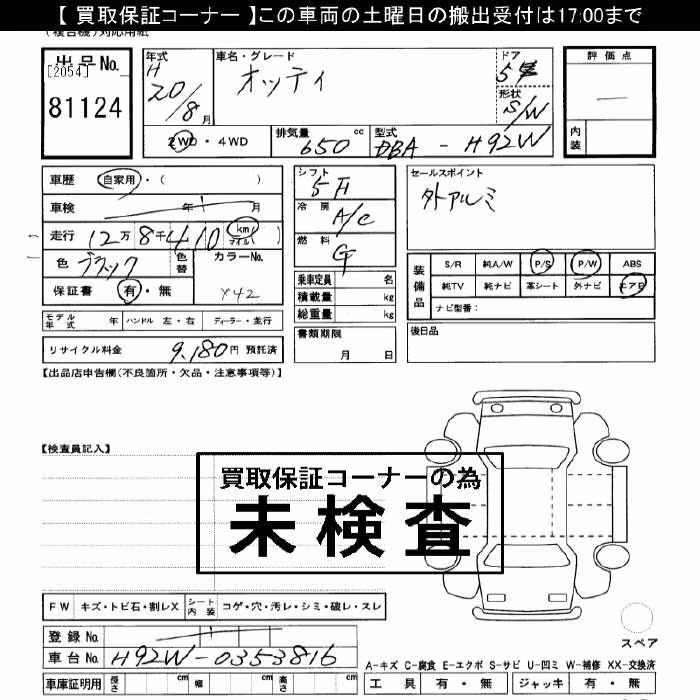 【 買取保証コーナー 】この車両の土曜日の搬出受付は17:00まで
(複合機)対応用紙
出品No.
[2054]
81124
年式
H
20/8月
車名・グレード
オッティ
ドア
5
形状
S/W
2WD・4WD
排気量
650 cc
型式
DBA - H92W
評価点
―
内装
車歴 自家用・( )
車検 年 月
走行 12万8千410 km マイル( )
色 ブラック
色替
カラーNo.
X42
保証書 有・無
モデル年式 年
ハンドル 左・右
ディーラー・並行
リサイクル料金 9,180円 預託済
シフト
5F
冷房
A/C
燃料
G
乗車定員 名
積載量 kg
総重量 kg
書類期限
月 日
セールスポイント
外アルミ
装備品
S/R 純A/W P/S P/W ABS
純TV 純ナビ 革シート 外ナビ エアB
ナビ型番:
後日品
【出品店申告欄(不良箇所・欠品・注意事項等)】
【検査員記入】
買取保証コーナーの為
未検査
FW キズ・トビ石・割レX
シート内装 コゲ・穴・汚レ・シミ・破レ・スレ
登録No.
車台No. H92W-0353816
車庫証明用 長さ cm 幅 cm 高さ cm
スペア
A-キズ C-腐食 E-エクボ S-サビ U-凹ミ W-補修 XX-交換済
工具 有・無 ジャッキ 有・無